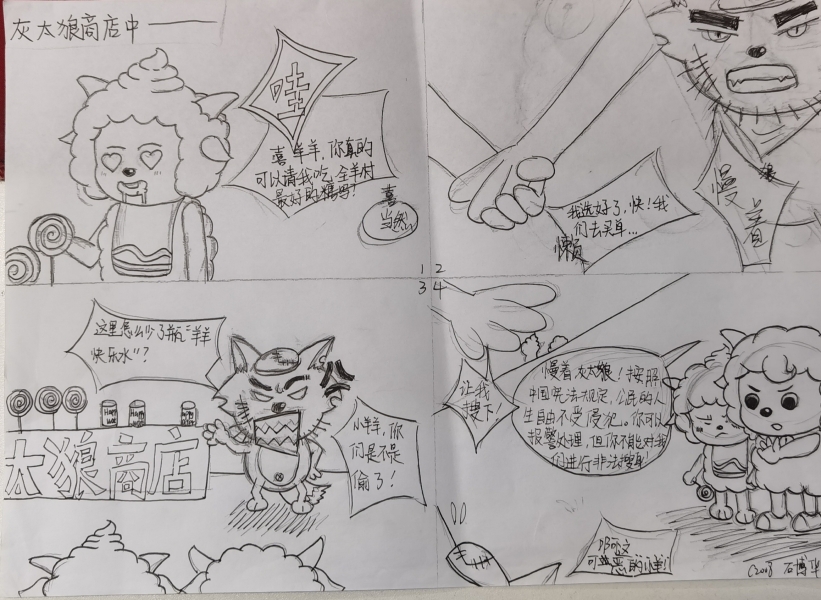 灰太狼商店中——
哇
喜羊羊，你真的
可以请我吃全羊村
最好的糖吗？
喜
当然
1 2
3 4
我选好了，快！我
们去买单…
懒
狼
慢着
这里怎么少了瓶“羊羊
快乐水”？
太狼商店
小羊，你
们是不是
偷了！
让我
搜下！
慢着灰太狼！按照
中国宪法规定，公民的人
生自由不受侵犯。你可以
报警处理，但你不能对我
们进行非法搜身！
可恶的小羊！
石博华